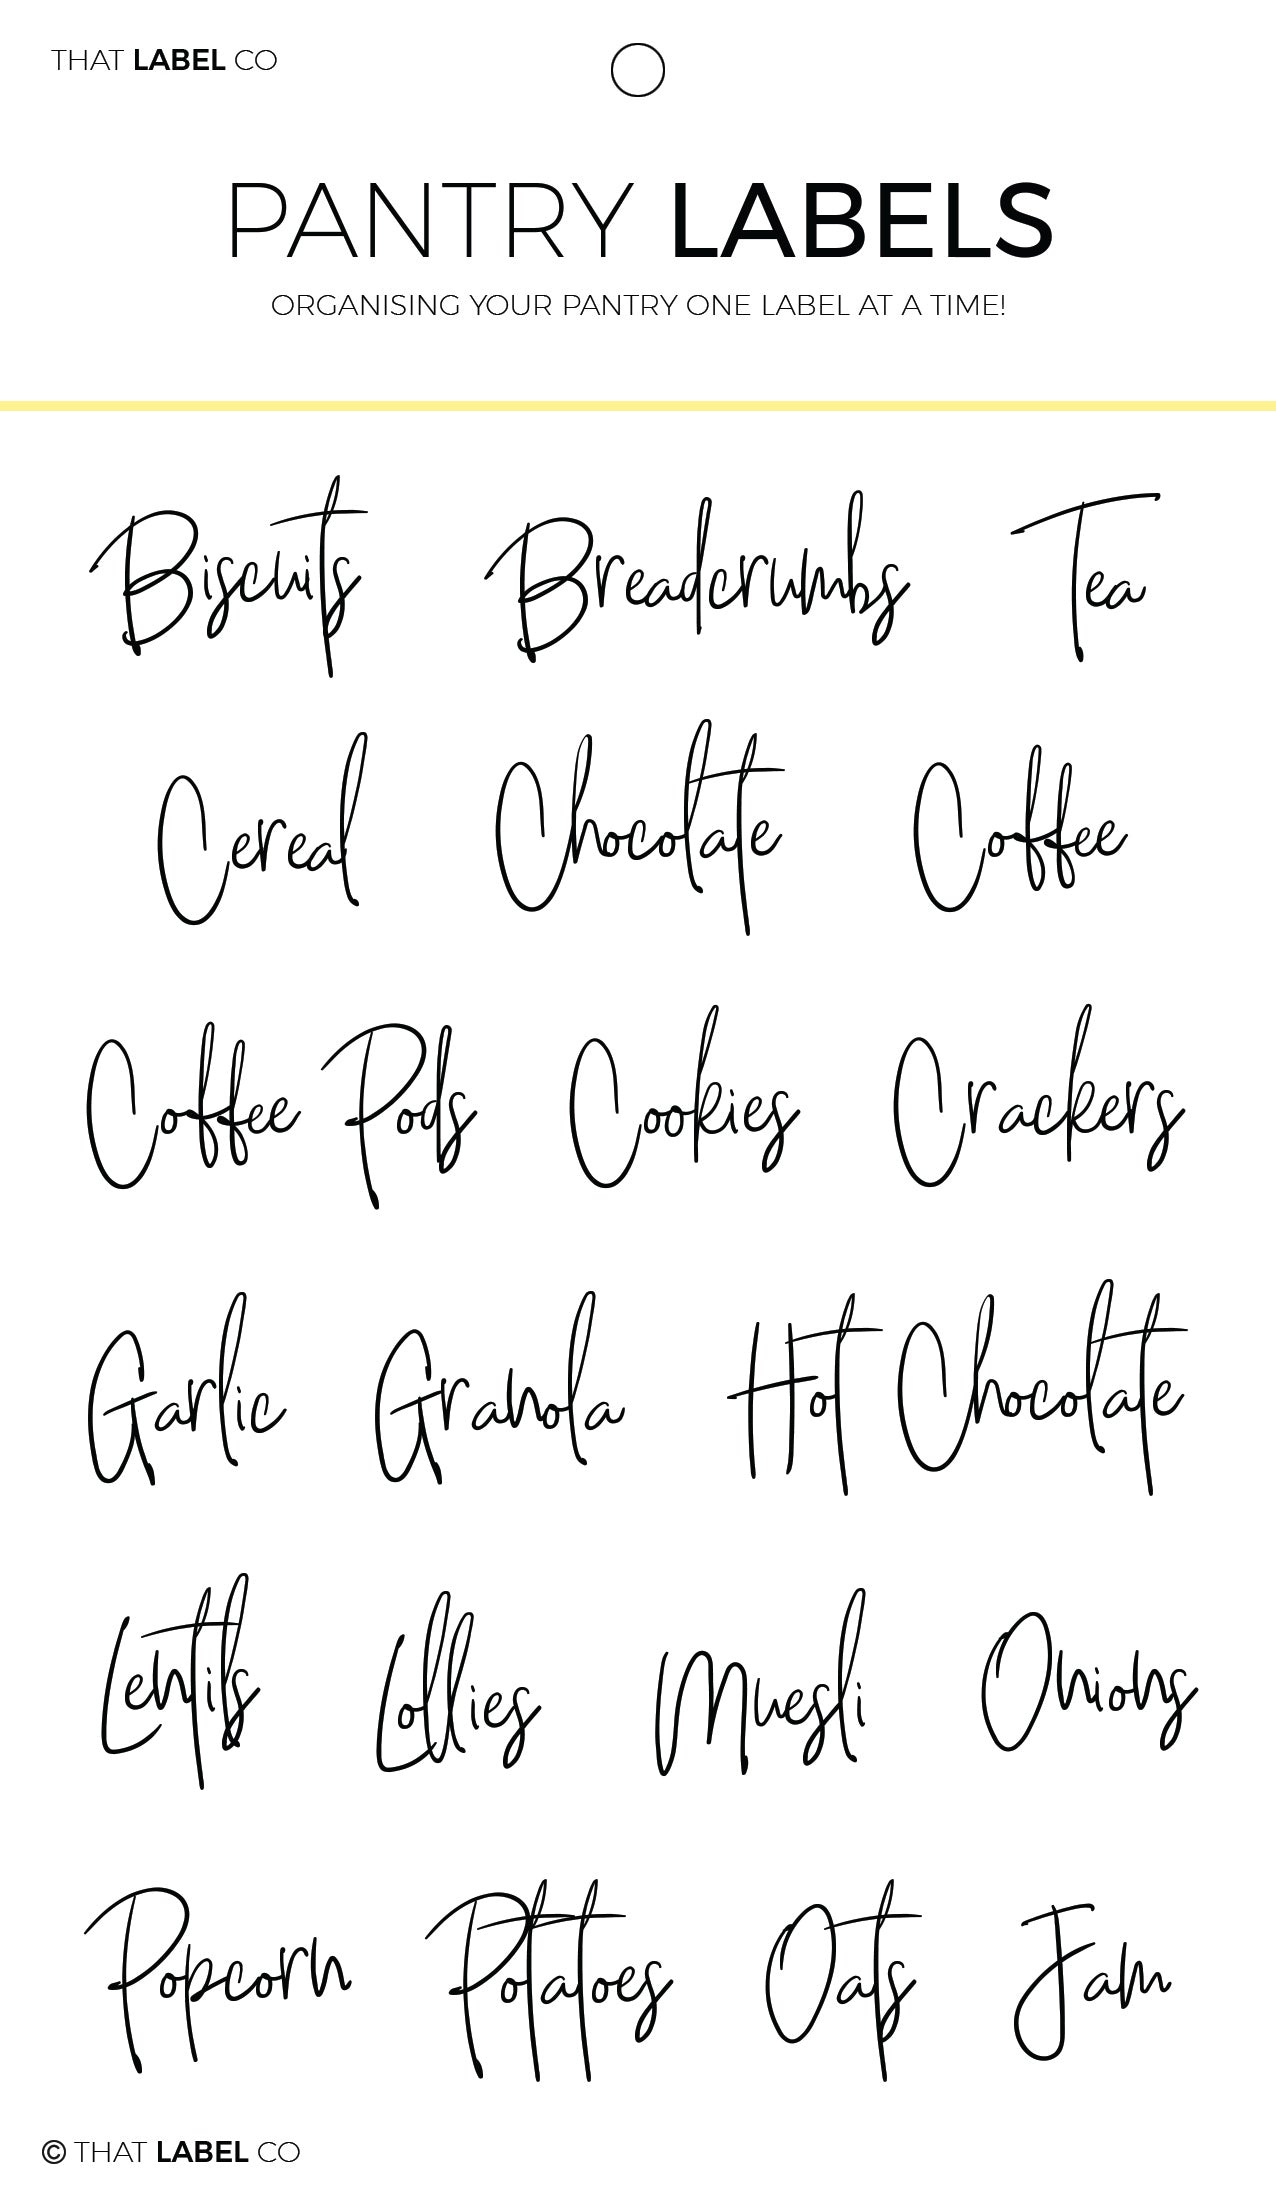 THAT LABEL CO
PANTRY LABELS
ORGANISING YOUR PANTRY ONE LABEL AT A TIME!
Biscuits Breadcrumbs Tea
Cereal Chocolate Coffee
Coffee Pods Cookies Crackers
Garlic Granola Hot Chocolate
Lentils Lollies Muesli Onions
Popcorn Potatoes Oats Jam
© THAT LABEL CO